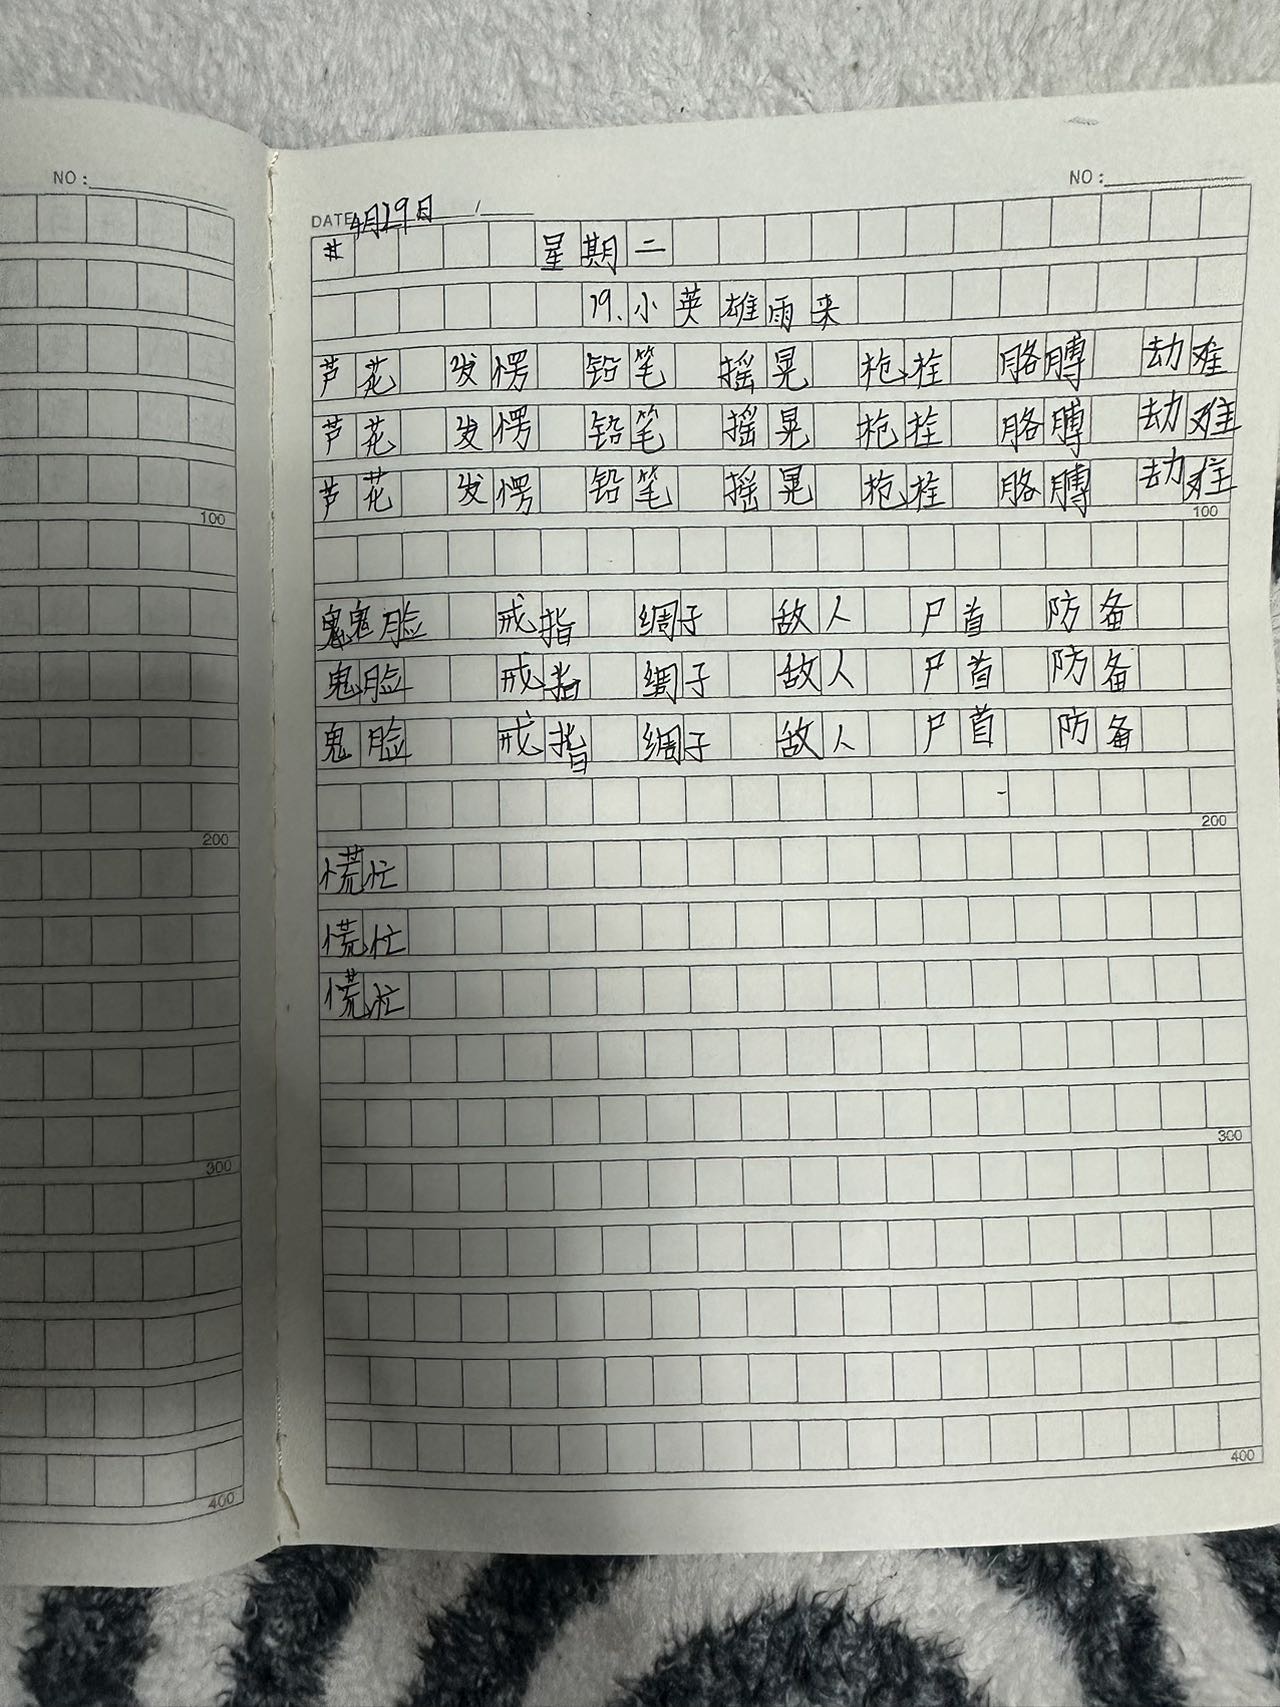 NO:
NO:
DATE 4月29日 /
# 星期二
19.小英雄雨来
芦花 发愣 铅笔 摇晃 枪栓 胳膊 劫难
芦花 发愣 铅笔 摇晃 枪栓 胳膊 劫难
芦花 发愣 铅笔 摇晃 枪栓 胳膊 劫难
100
100
鬼脸 戒指 绸子 敌人 尸首 防备
鬼脸 戒指 绸子 敌人 尸首 防备
鬼脸 戒指 绸子 敌人 尸首 防备
200
200
慌忙
慌忙
慌忙
300
300
400
400